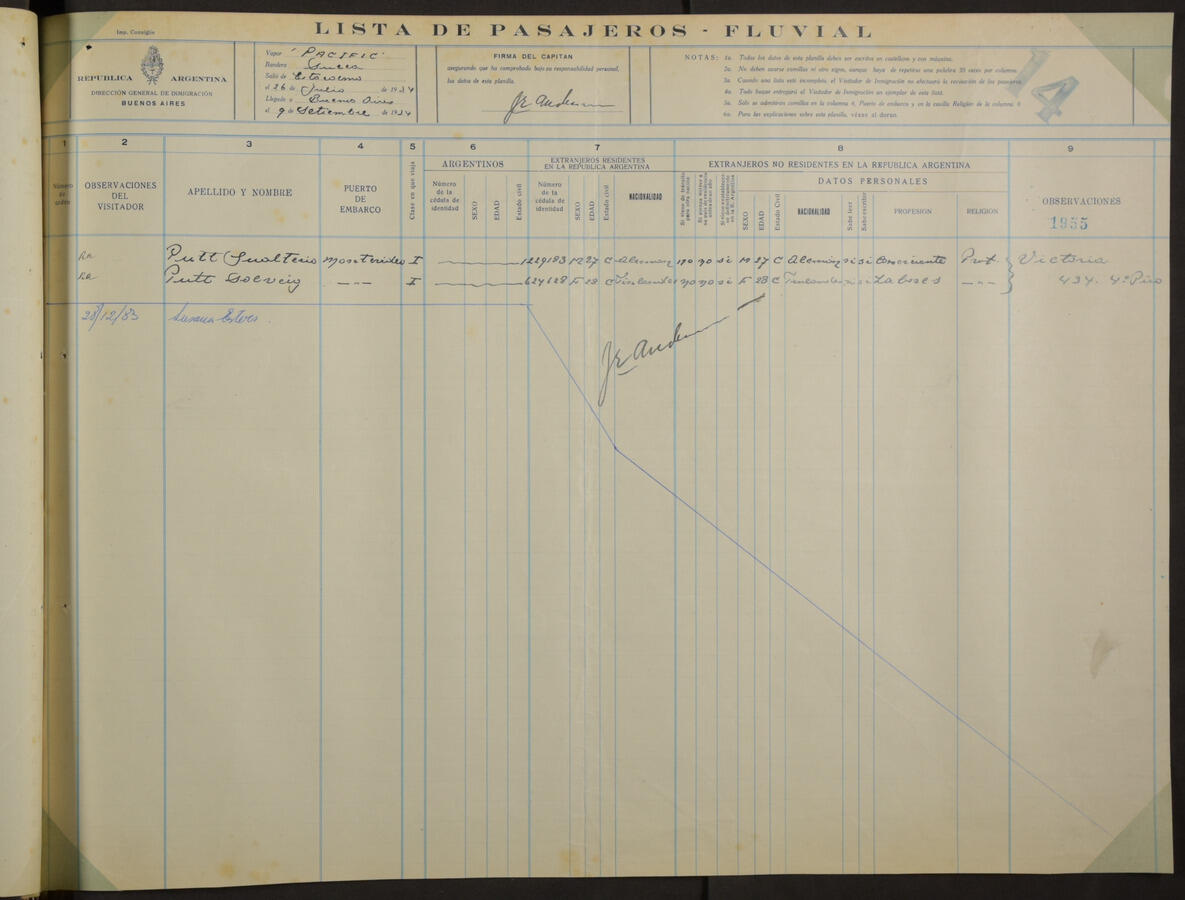 Imp. Consiglio
LISTA DE PASAJEROS - FLUVIAL
REPUBLICA ARGENTINA
DIRECCIÓN GENERAL DE INMIGRACIÓN
BUENOS AIRES
Vapor "PACIFIC"
Bandera Sueca
Salió de Estocolmo
el 26 de Julio de 1934
Llegado a Buenos Aires
el 9 de Setiembre de 1934
FIRMA DEL CAPITAN
asegurando que ha comprobado bajo su responsabilidad personal,
los datos de esta planilla.
NOTAS: 1a Todos los datos de esta planilla deben ser escritos en castellano y con máquina.
2a. No deben usarse comillas ni otro signo, aunque haya de repetirse una palabra 35 veces por columna.
3a. Cuando una lista esté incompleta, el Visitador de Inmigración no efectuará la revisación de los pasajeros.
4a. Todo buque entregará al Visitador de Inmigración un ejemplar de esta lista.
5a. Sólo se admitiran comillas en la columna 4, Puerto de embarco y en la casilla Religión de la columna 8
6a. Para las explicaciones sobre esta planilla, véase al dorso.
14
1 2 3 4 5 6 7 8 9
Número de orden
OBSERVACIONES DEL VISITADOR
APELLIDO Y NOMBRE
PUERTO DE EMBARCO
Clase en que viaja
ARGENTINOS
Número de la cédula de identidad
SEXO
EDAD
Estado civil
EXTRANJEROS RESIDENTES EN LA REPUBLICA ARGENTINA
Número de la cédula de identidad
SEXO
EDAD
Estado civil
NACIONALIDAD
EXTRANJEROS NO RESIDENTES EN LA REPUBLICA ARGENTINA
DATOS PERSONALES
SEXO
EDAD
Estado Civil
NACIONALIDAD
Sabe leer
Sabe escribir
PROFESION
RELIGION
OBSERVACIONES
1955
Putt Gualterio Montevideo I 1229183 M 27 C Aleman no no si M 27 C Aleman si si Comerciante Prot. Victoria
Putt Solveig I 624628 F 28 C Finlandes no no si F 28 C Finlandes si si Labores 434. 4° Piso
28/12/83 Susana Esteves